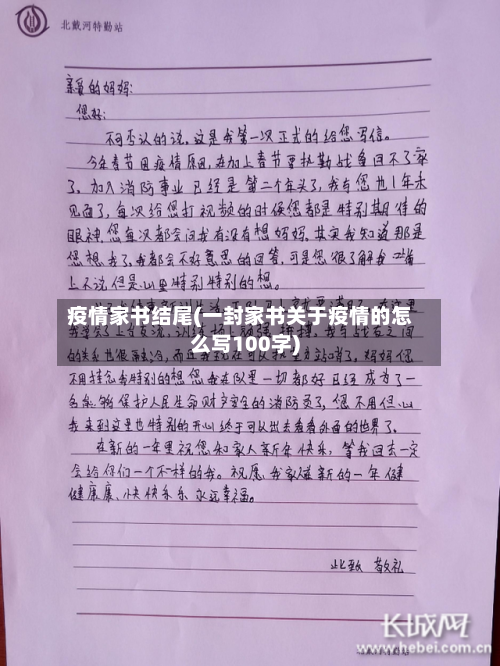 北戴河特勤站
亲爱的妈妈:
您好:
不可否认的说,这是我第一次正式的给您写信。
今年春节因疫情原因,在加上春节要执勤战备回不了家
了。加入消防事业已经是第二个年头了,我与您也1年未
见面了,每次给您打视频的时候您都是特别期待的
眼神,您每次都会问我有没有想妈妈,其实我知道那是
您想我了,我都会不好意思的回答,可是您很了解我 嘴
上不说但是心里特别特别的想。
疫情家书结尾(一封家书关于疫情的怎
么写100字)
的关系也很融洽,妈妈您
不用挂念我特别的想您我在队里一切都好已经成为了一
名能够保护人民生命财产安全的消防员了,您不用但心
我来到这里也特别的开心终于可以出去看看外面的世界了。
在新的一年里祝您和家人新年快乐,等我回去一定
会给你们一个不一样的我。祝愿我家人新的一年健
健康康、快快乐乐永远幸福。
此致 敬礼
长城网
www.hebei.com.cn